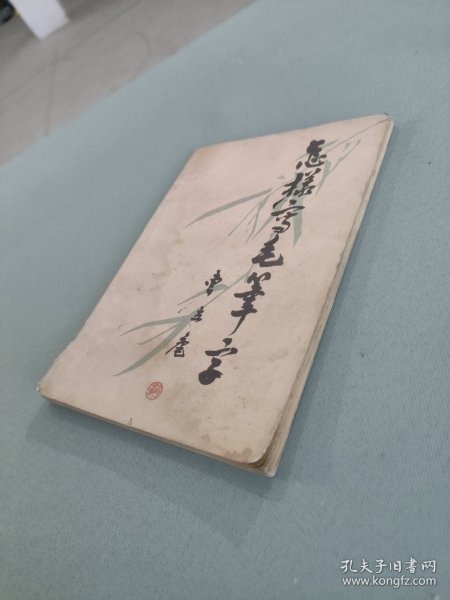 怎样写毛笔字
孔夫子旧书网
www.kongfz.com